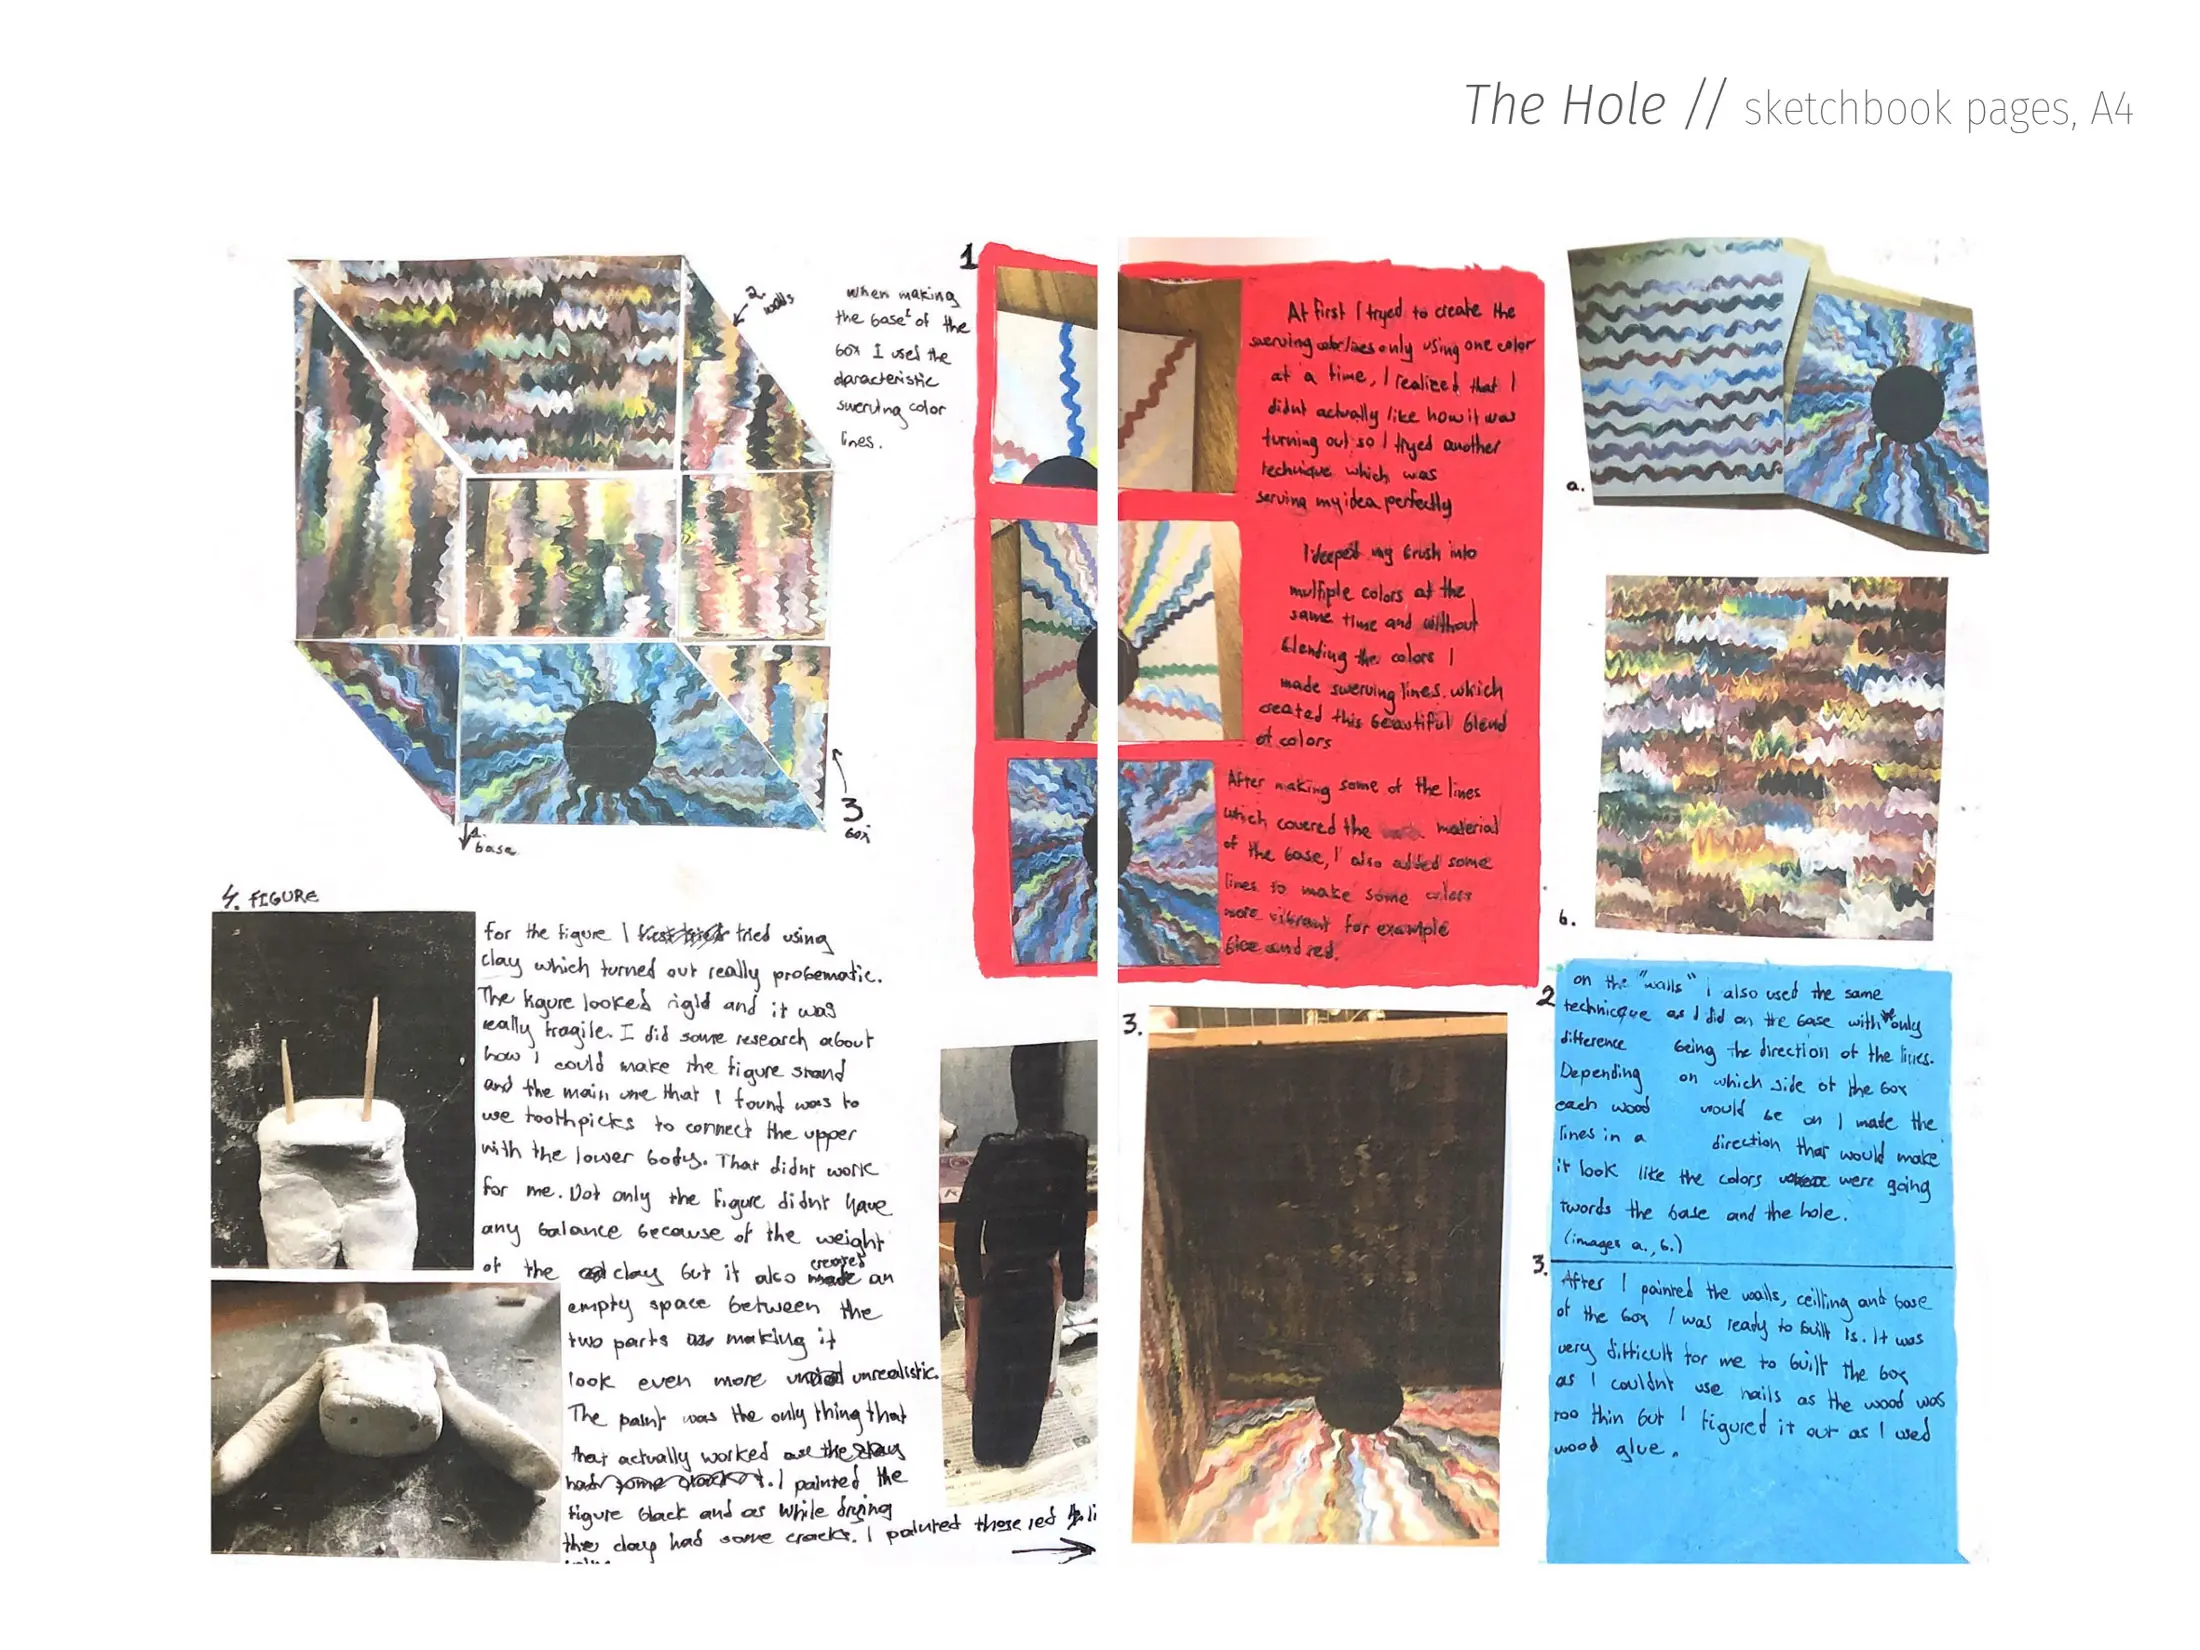 The Hole // sketchbook pages, A4
2. walls
when making
the base¹ of the
box I used the
characteristic
swerving color
lines.
3.
box
1.
base
4. FIGURE
for the figure I tried using
clay which turned out really probematic.
The figure looked rigid and it was
really fragile. I did some research about
how I could make the figure stand
and the main one that I found was to
use toothpicks to connect the upper
with the lower body. That didnt work
for me. Not only the figure didnt have
any balance because of the weight
of the clay but it also created an
empty space between the
two parts making it
look even more unrealistic.
The paint was the only thing that
that actually worked as the clay
had some cracks. I painted the
figure black and as while drying
the clay had some cracks. I painted those red
1
At first I tryed to create the
swerving lines only using one color
at a time, I realized that I
didnt actually like how it was
turning out so I tryed another
technique which was
serving my idea perfectly
I deeped my brush into
multiple colors at the
same time and without
blending the colors I
made swerving lines. which
created this beautiful blend
of colors
After making some of the lines
which covered the material
of the base, I also added some
lines to make some colors
more vibrant for example
blue and red.
3.
a.
b.
2
on the "walls" i also used the same
technicque as I did on the base with the only
difference being the direction of the lines.
Depending on which side of the box
each wood would be on I made the
lines in a direction that would make
it look like the colors were going
twords the base and the hole.
(images a., b.)
3.
After I painted the walls, ceilling and base
of the box I was ready to built is. It was
very difficult for me to built the box
as I couldnt use nails as the wood was
too thin but I figured it out as I used
wood glue.